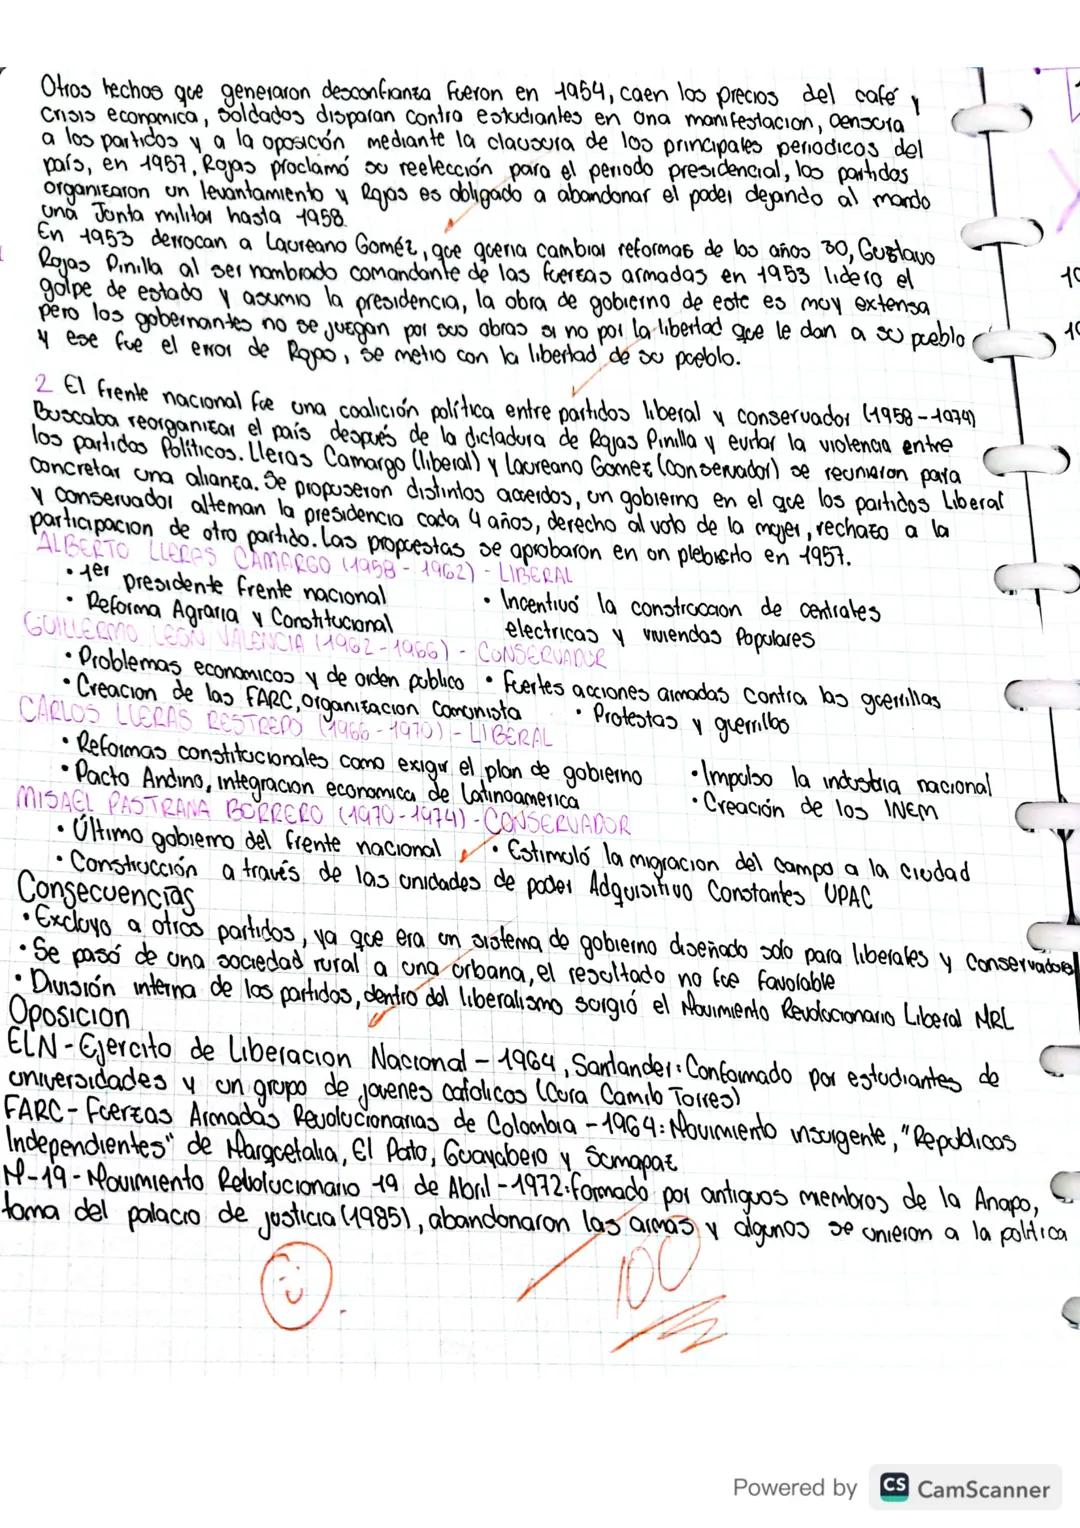 Otros hechos que generaron desconfianza fueron en 1954, caen los precios del café y
crisis economica, soldados disparan contra estudiantes en una manifestacion, censura
a los partidos y a la oposición mediante la clausura de los principales periodicos del
país, en 1957, Rojas proclamó su reelección para el periodo presidencial, los partidos
organizaron un levantamiento y Rojas es obligado a abandonar el poder dejando al mando
una Junta militar hasta 1958.
En 1953 derrocan a Laureano Goméz, que queria cambiar reformas de los años 30, Gustavo
Rojas Pinilla al ser nombrado comandante de las fuerzas armadas en 1953 lidero el
golpe de estado y asumio la presidencia, la obra de gobierno de este es muy extensa
pero los gobernantes no se juzgan por sus obras si no por la libertad que le dan a su pueblo
y ese fue el error de Rojas, se metio con la libertad de su pueblo.
2 El frente nacional fue una coalición política entre partidos liberal y conservador (1958-1974)
Buscaba reorganizar el país después de la dictadura de Rojas Pinilla y evitar la violencia entre
los partidos Políticos. Lleras Camargo (liberal) y Laureano Gomez (conservador) se reunieron para
concretar una alianza. Se propuseron distintos acuerdos, un gobierno en el que los partidos Liberal
y conservador alternan la presidencia cada 4 años, derecho al voto de la mujer, rechazo a la
participacion de otro partido. Las propuestas se aprobaron en un plebisito en 1957.
ALBERTO LLERAS CAMARGO (1958-1962) - LIBERAL
• 1er presidente frente nacional
• Incentivó la construccion de centrales
electricas y viviendas Populares
• Reforma Agraria y Constitucional
GUILLERMO LEON VALENCIA (1962-1966) - CONSERVADOR
• Problemas economicos y de orden publico • Fuertes acciones armadas contra las guerrillas
• Creacion de las FARC, organizacion comunista • Protestas y guerrillas
CARLOS LLERAS RESTREPO (1966-1970) - LIBERAL
• Reformas constitucionales como exigir el plan de gobierno • Impulso la industria nacional
• Pacto Andino, integracion economica de Latinoamerica • Creación de los INEM
MISAEL PASTRANA BORRERO (1970-1974) - CONSERVADOR
• Último gobierno del frente nacional • Estimuló la migracion del campo a la ciudad
• Construcción a través de las unidades de poder Adquisitivo Constantes UPAC
Consecuencias
• Excluyo a otros partidos, ya que era un sistema de gobierno diseñado solo para liberales y conservadores
• Se pasó de una sociedad rural a una urbana, el resultado no fue favorable
• División interna de los partidos, dentro del liberalismo surgió el Movimiento Revolucionario Liberal MRL
Oposicion
ELN - Ejercito de Liberacion Nacional - 1964, Santander: Conformado por estudiantes de
universidades y un grupo de jovenes catolicos (Cura Camilo Torres)
FARC - Fuerzas Armadas Revolucionarias de Colombia - 1964: Movimiento insurgente, "Republicas
Independientes" de Marquetalia, El Pato, Guayabero y Sumapaz
M-19 - Movimiento Revolucionario 19 de Abril - 1972: formado por antiguos miembros de la Anapo,
toma del palacio de justicia (1985), abandonaron las armas y algunos se unieron a la politica
100
Powered by CS CamScanner